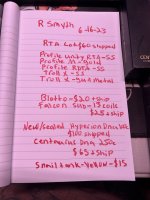 R Smyth
6-16-23
RTA Lot $60 shipped
Profile unity RTA-SS
Profile M-gold
Profile RDTA-SS
Troll X-SS
Troll X-gun metal
Blotto-$20+ship
Falcon sub-13 coils
$25+ship
New/sealed Hyperion DNA100C
$100 shipped
Centaurus DNA 250C
$65+ship
Snail tank-Yellow-$15